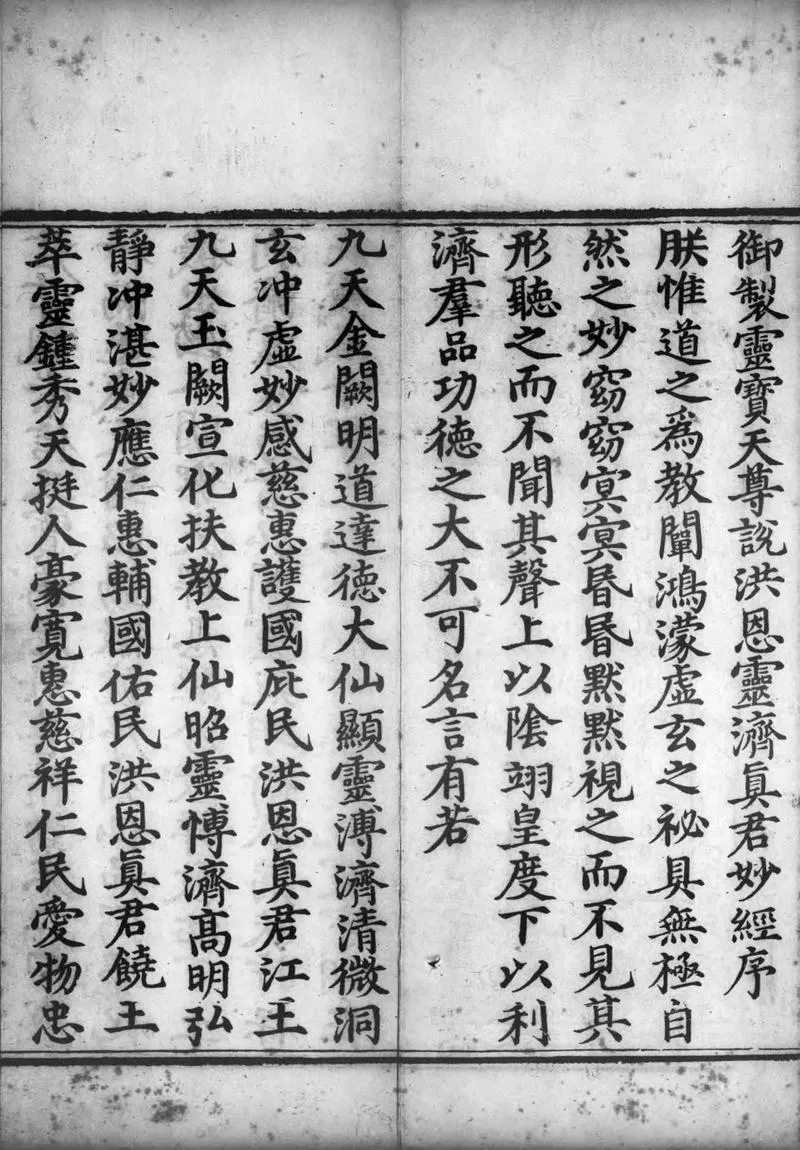 御製靈寶天尊說洪恩靈濟眞君妙經序
朕惟道之爲教闡鴻濛虛玄之祕具無極自
然之妙窈窈冥冥昬昬默默視之而不見其
形聽之而不聞其聲上以陰翊皇度下以利
濟羣品功德之大不可名言有若
九天金闕明道達德大仙顯靈溥濟清微洞
玄冲虛妙感慈惠護國庇民洪恩眞君江王
九天玉闕宣化扶教上仙昭靈愽濟高明弘
靜冲湛妙應仁惠輔國佑民洪恩眞君饒王
萃靈鍾秀天挺人豪寬惠慈祥仁民愛物忠